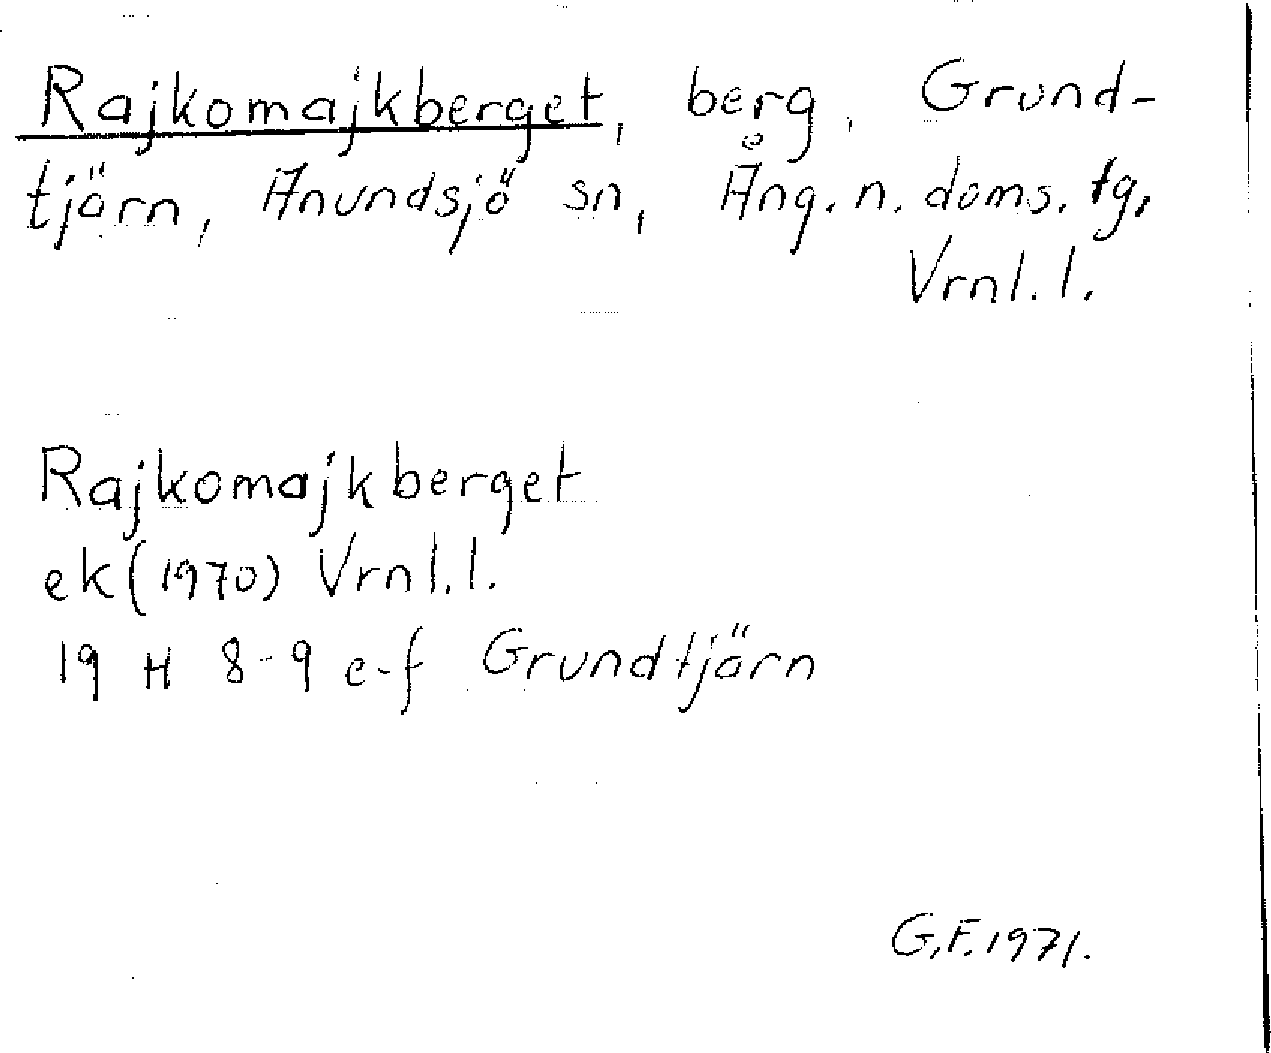 Rajkomajkberget, berg, Grund-
tjärn, Anundsjö sn, Ång. n. doms. tg,
Vrnl. l.
Rajkomajkberget
ek (1970) Vrnl. l.
19 H 8-9 e-f Grundtjärn
G.F. 1971.